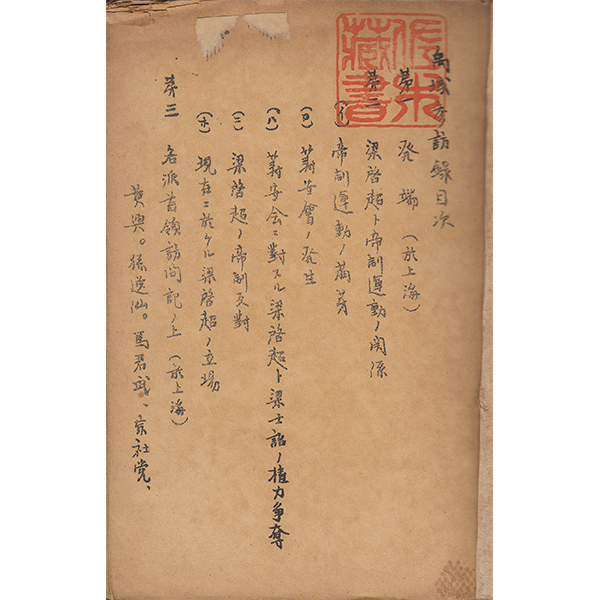 禹域訪録目次
第一 発端 (於上海)
第二 梁啓超ト帝制運動ノ関係
(イ) 帝制運動ノ萠芽
(ロ) 籌安會ノ発生
(ハ) 籌安会ニ對スル梁啓超ト梁士詒ノ権力争奪
(ニ) 梁啓超ノ帝制反對
(ホ) 現在ニ於ケル梁啓超ノ立場
第三 各派首領訪問記ノ上 (於上海)
黄興。孫逸仙。馬君武、宗社党、
藏書